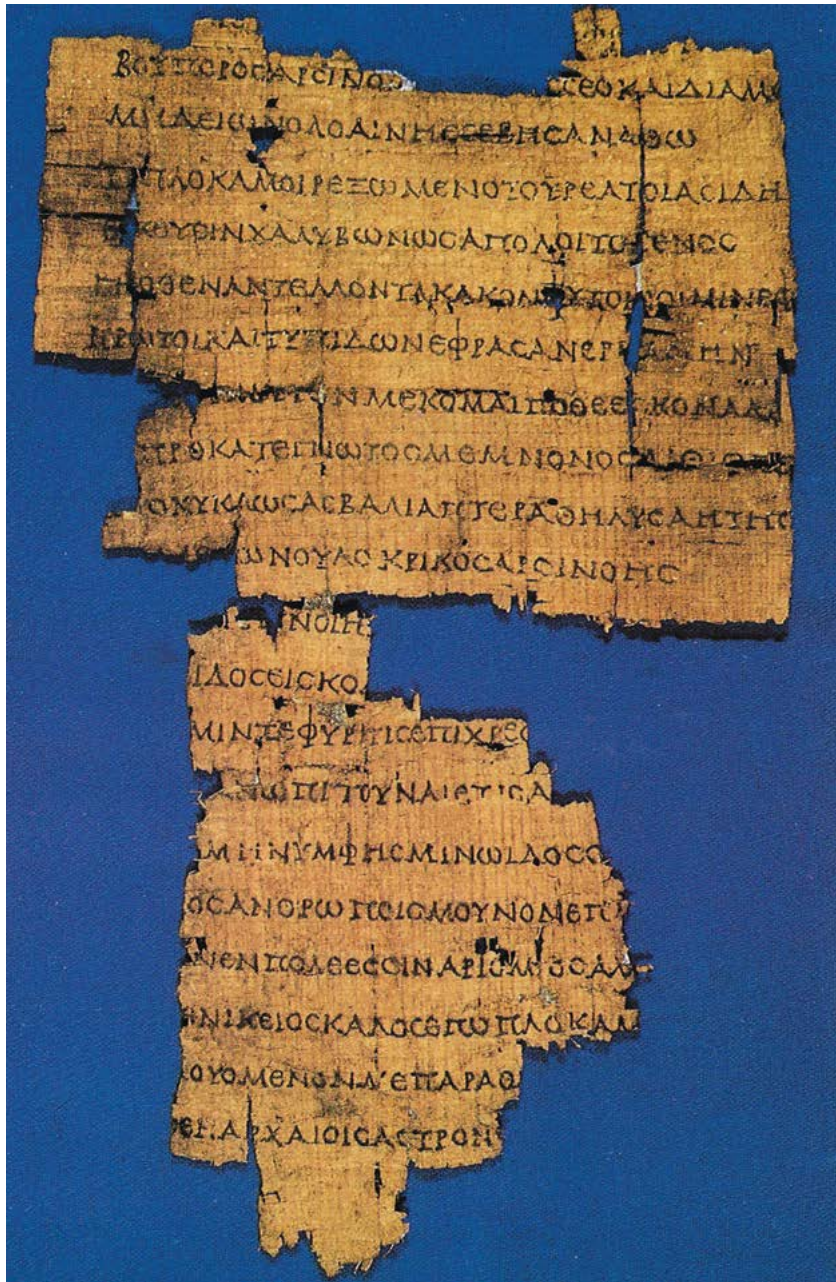 ΒΟΥΠΟΡΟCΑΡCΙΝΟ CΕΟΚΑΙΔΙΑΜ
ΜΗΔΕΙΩΝΟΛΟΑΙΝΗΕCΕΒΗCΑΝΑΘΩ
ΤΙΠΛΟΚΑΜΟΙΡΕΞΩΜΕΝΟΤΟΥΡΕΑΤΟΙΑCΙΔΗ
ΕΙΚΟΥCΙΝΧΑΛΥΒΩΝΩCΑΠΟΛΟΙΤΟΓΕΝΟC
ΓΗΟΘΕΝΑΝΤΕΛΛΟΝΤΑΚΑΚΟΝΦΥΤΟΝΟΙΜΙΝΕΦ
ΠΡΩΤΟΙΚΑΙΤΥΠΙΔΩΝΕΦΡΑCΑΝΕΡΓΑCΙΗΝ
ΜΗΤΟΝΜΕΚΟΜΑΙΠΟΘΕΕCΚΟΝΑΔ
ΠΡΟΚΑΤΕΓΝΩΤΟCΜΕΜΝΟΝΟCΑΙΘΙΟΠΟC
ΟΚΥΚΛΩCΑCΒΑΛΙΑΠΤΕΡΑΘΗΛΥCΑΗΤΗC
ΩΝΟΥΛΟΚΡΙΚΟCΑΡCΙΝΟΗC
ΝΟΙΗ
ΙΔΟCΕΙCΚΟ
ΜΙΝΖΕΦΥΡΙΤΙCΕΠΙΧΡΕΟ
ΝΩΠΙΤΟΥΝΑΙΕΤΙCΑ
ΜΗΝΥΜΦΗCΜΙΝΩΙΔΟCΟ
ΟCΑΝΘΡΩΠΟΙCΜΟΥΝΟΝΕΠΙ
ΕΝΠΟΛΕΕCCΙΝΑΡΙΘΜΙΟCΑΛΛ
ΝΙΚΕΙΟCΚΑΛΟCΕΓΩΠΛΟΚΑΜ
ΛΟΥΟΜΕΝΟΝΜ'ΕΠΑΡΑΘ
ΕΝΑΡΧΑΙΟΙCΑCΤΡΟΝ